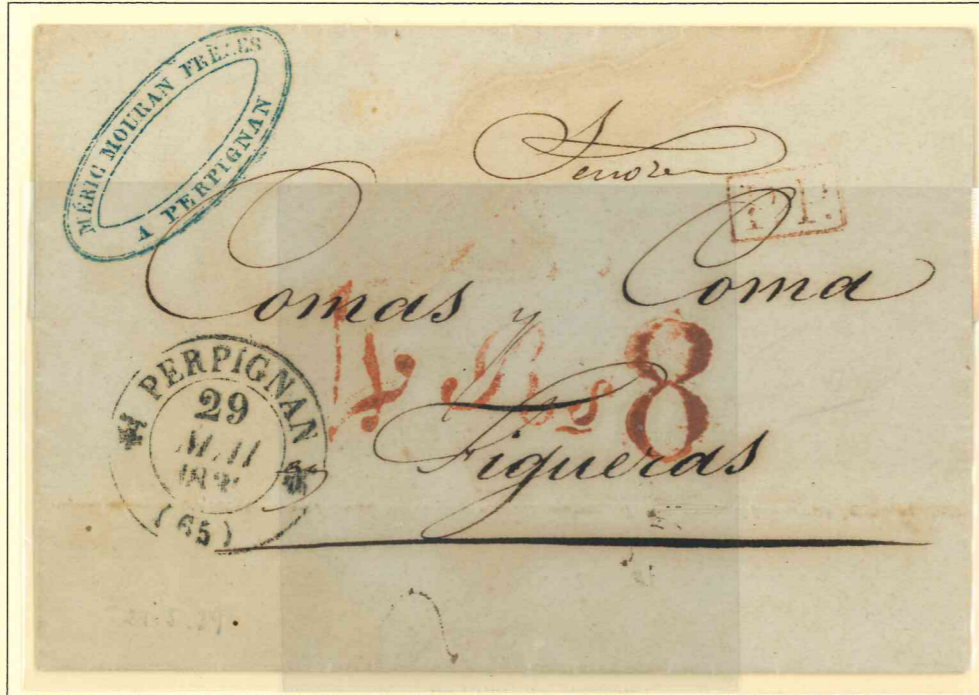 MÉRIC MOURAN FRÈRES
A PERPIGNAN
Senores
P.P.
Comas y Coma
4 Rs 8
PERPIGNAN
29
MAI
(65)
Figueras